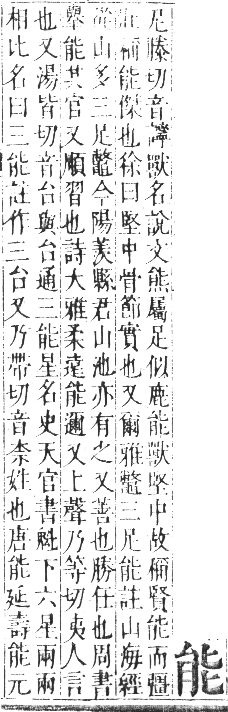 能
尼滕切音獰獸名說文熊屬足似鹿能獸堅中故稱賢能而彊
壯稱能傑也徐曰堅中骨節實也又爾雅鼈三足能註山海經
從山多三足鼈今陽羡縣君山池亦有之又善也勝任也周書
舉能其官又順習也詩大雅柔遠能邇又上聲乃等切夷人言
也又湯皆切音台與台通三能星名史天官書魁下六星兩兩
相比名曰三能註作三台又乃帶切音柰姓也唐能延壽能元